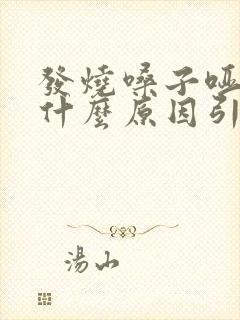 發燒嗓子啞
什麼原因引
湯山